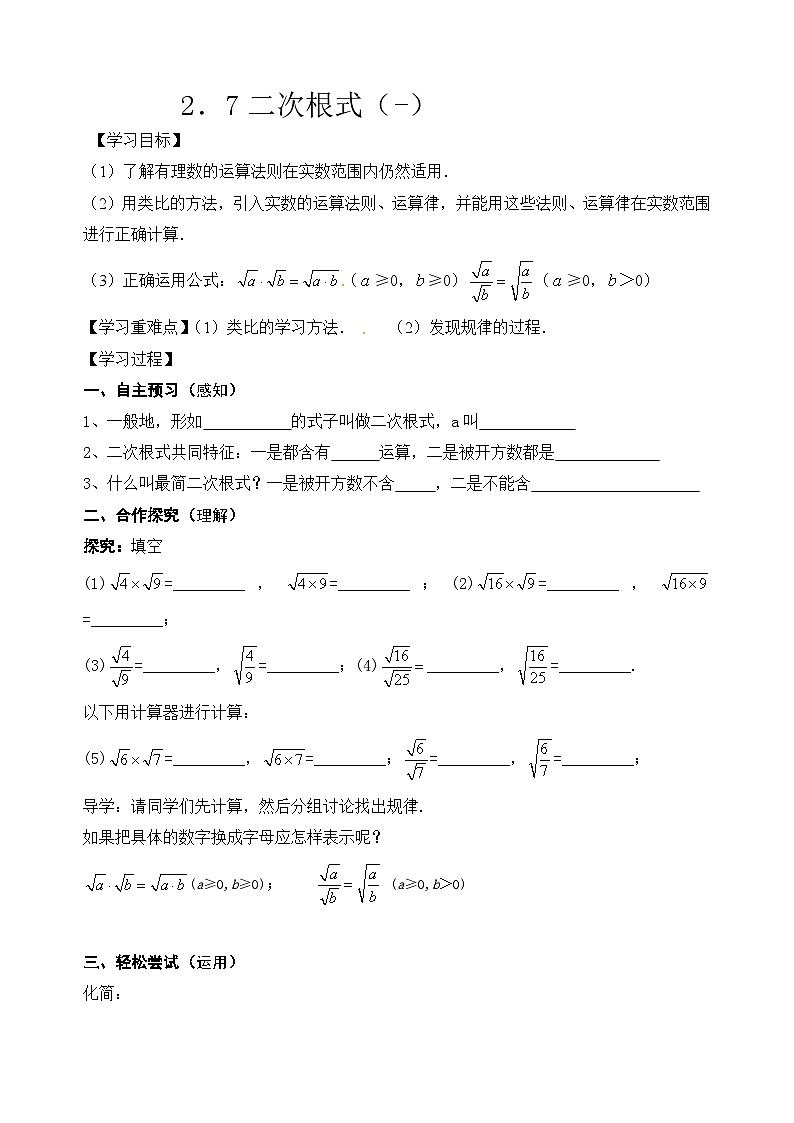 2．7二次根式（-）
【学习目标】
（1）了解有理数的运算法则在实数范围内仍然适用．
（2）用类比的方法，引入实数的运算法则、运算律，并能用这些法则、运算律在实数范围
进行正确计算．
（3）正确运用公式：√a·√b=√(a·b)．（a≥0，b≥0）√a/√b=√(a/b)（a≥0，b＞0）
【学习重难点】（1）类比的学习方法．．（2）发现规律的过程．
【学习过程】
一、自主预习（感知）
1、一般地，形如___________的式子叫做二次根式，a叫____________
2、二次根式共同特征：一是都含有______运算，二是被开方数都是_____________
3、什么叫最简二次根式？一是被开方数不含_____，二是不能含_____________________
二、合作探究（理解）
探究：填空
(1)√4×√9=_________ ， √(4×9)=_________ ； (2)√16×√9=_________ ， √(16×9)
=_________；
(3)√4/√9=_________，√(4/9)=_________；(4)√16/√25=_________，√(16/25)=_________．
以下用计算器进行计算：
(5)√6×√7=_________，√(6×7)=_________；√6/√7=_________，√(6/7)=_________；
导学：请同学们先计算，然后分组讨论找出规律．
如果把具体的数字换成字母应怎样表示呢？
√a·√b=√(a·b)(a≥0,b≥0)； √a/√b=√(a/b) (a≥0,b＞0)
三、轻松尝试（运用）
化简：